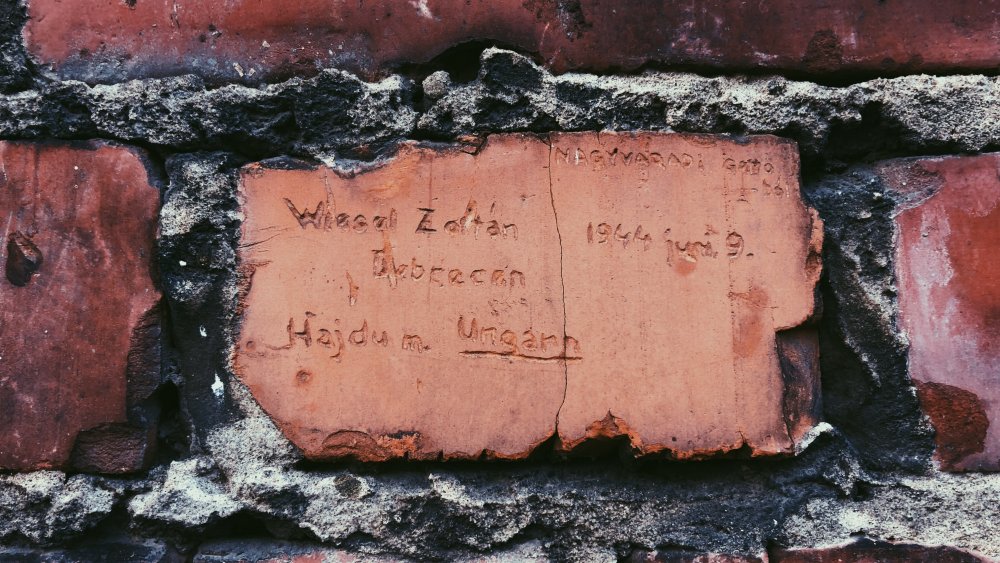 NAGYVÁRADI Gettó
-ból
Wiesel Zoltán
1944 juni 9.
Debrecen
Hajdu m. Ungarn